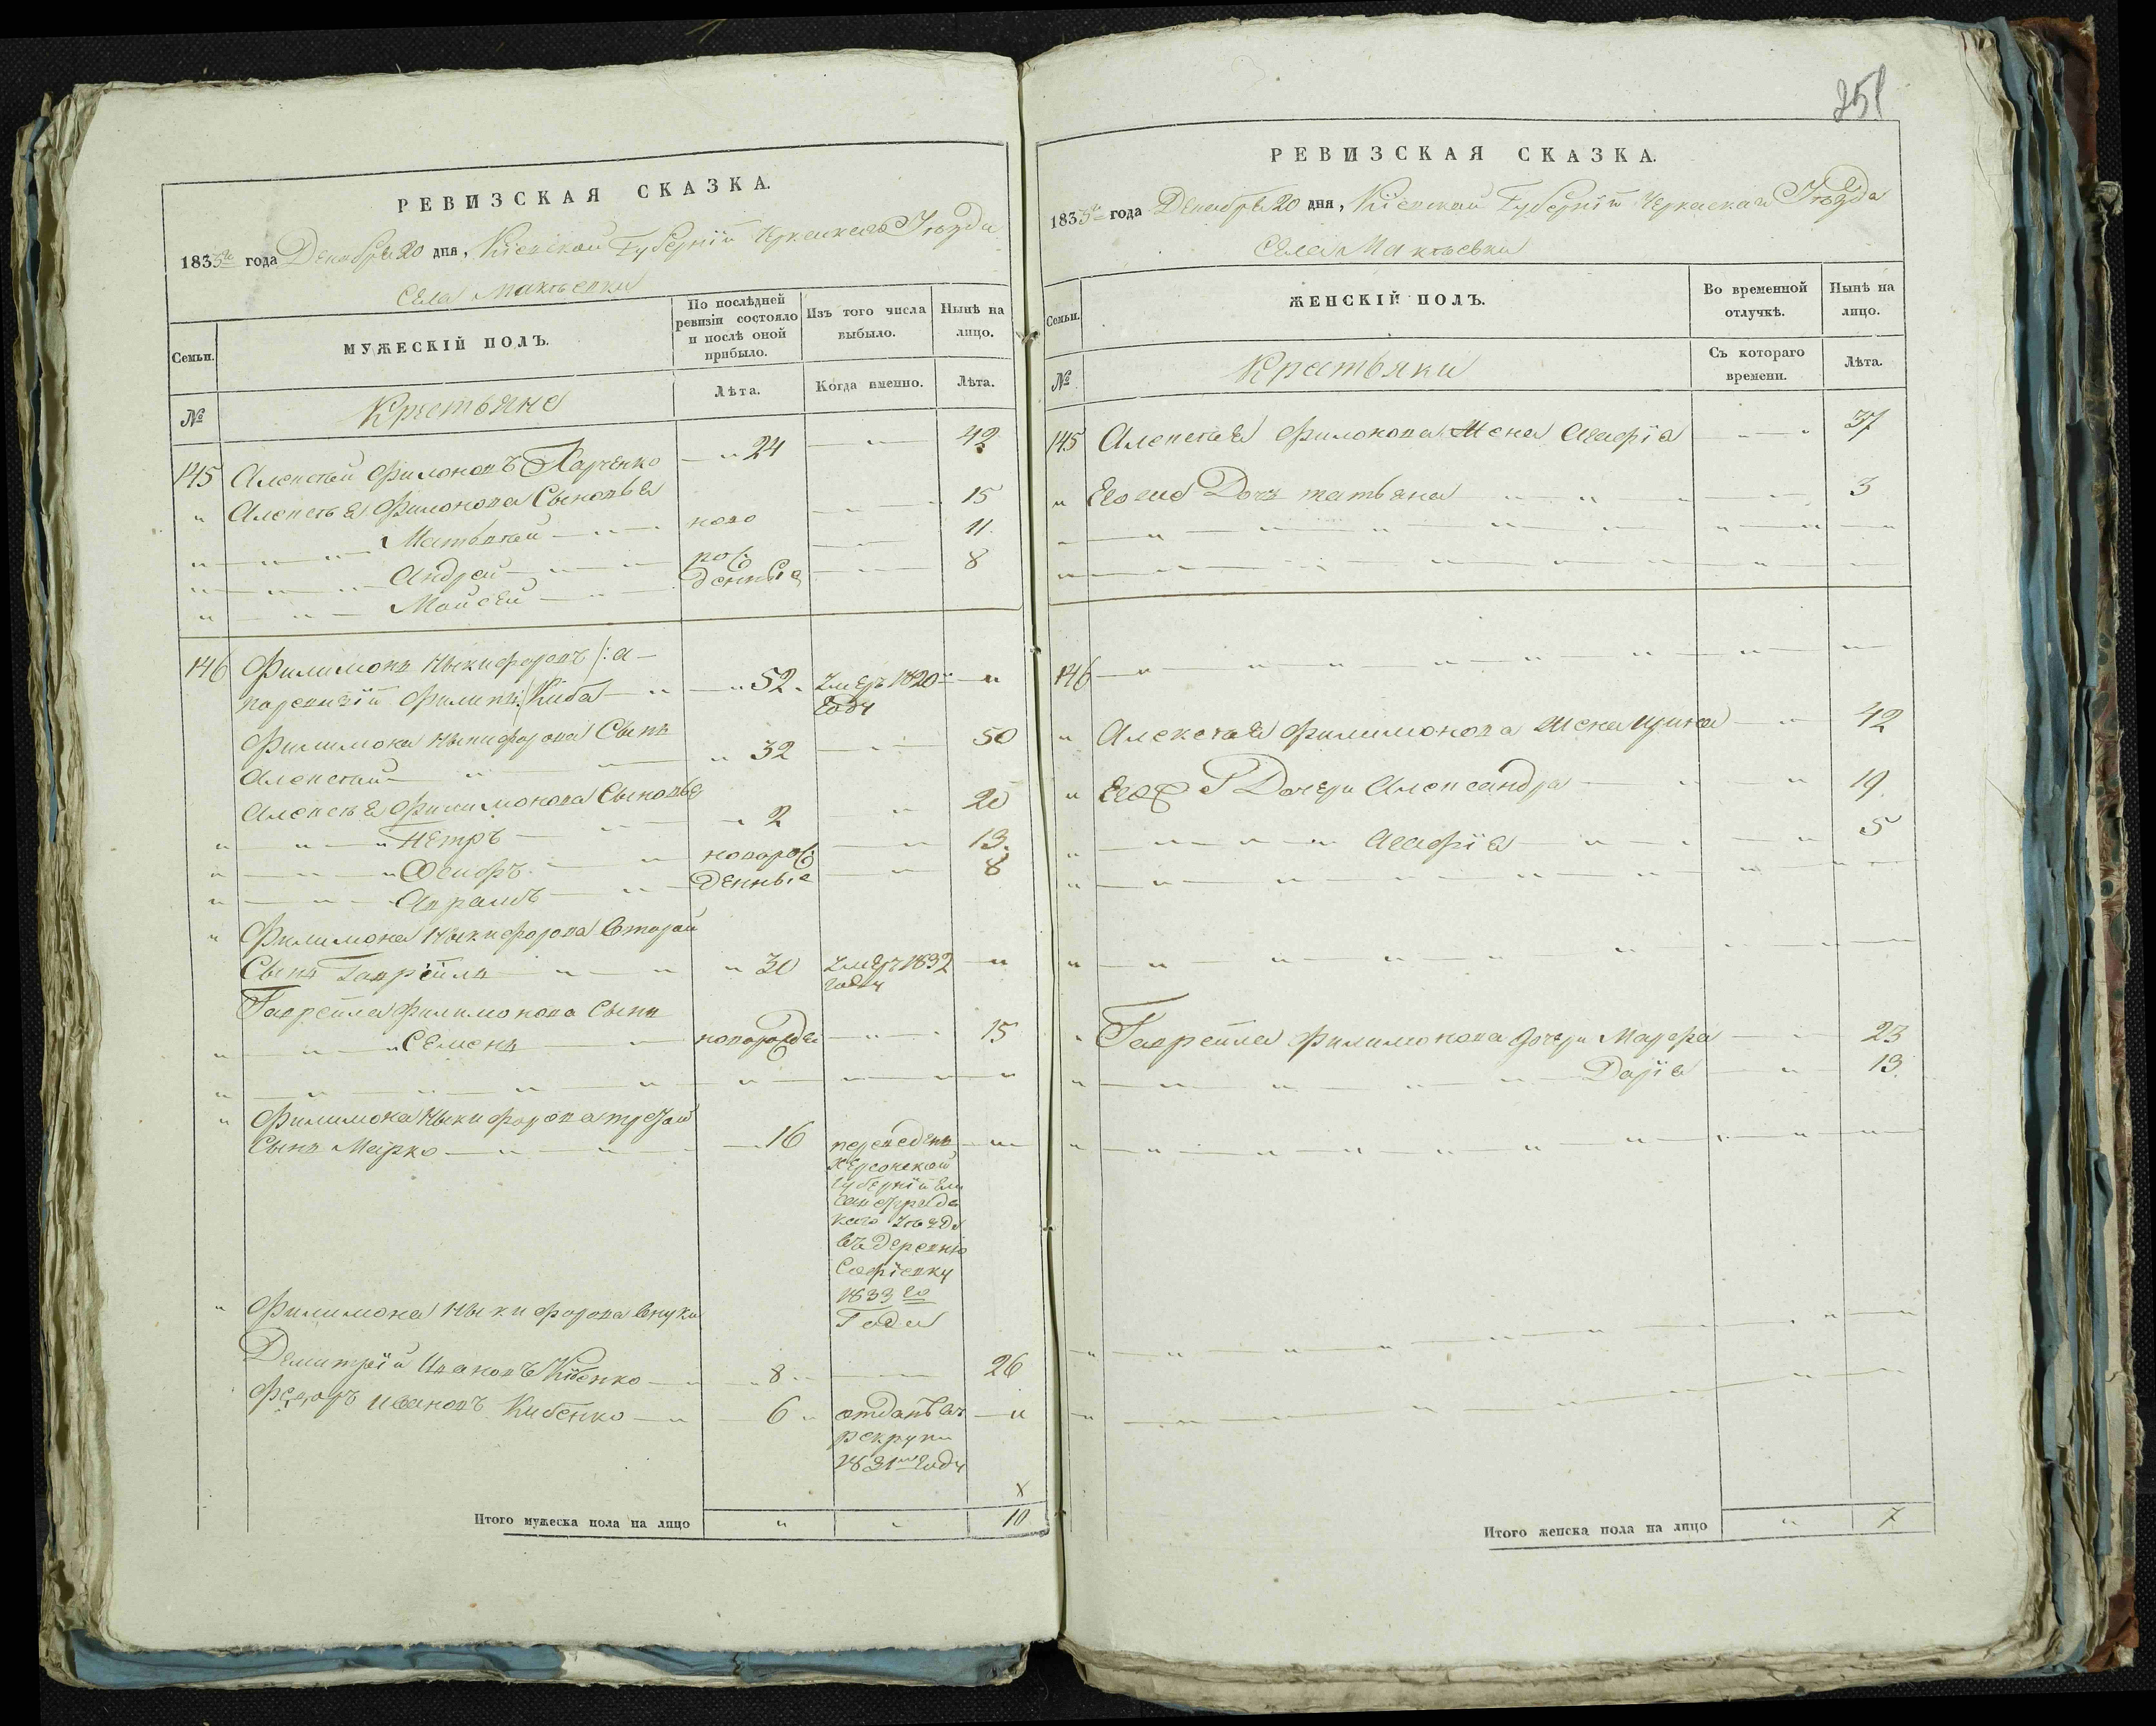 РЕВИЗСКАЯ СКАЗКА.
1835го года Декабря 20 дня, Кіевской Губерніи Черкаскаго Уѣзда
Села Макѣевки
Семьи.
МУЖЕСКІЙ ПОЛЪ.
По послѣдней ревизіи состояло и послѣ оной прибыло.
Изъ того числа выбыло.
Нынѣ на лицо.
№
Крестьяне
Лѣта.
Когда именно.
Лѣта.
145 Алексѣй Филоновъ Харченко 24 42
Алексѣя Филонова Сыновья
Матвѣй ново 15
Андрей рож 11
Мойсей денныя 8
146 Филимонъ Никифоровъ /: а
поревизіи Филипъ :/ Киба 52 Умеръ 1820
году
Филимона Никифорова Сынъ
Алексѣй 32 50
Алексѣя Филимонова Сыновья
Петръ 2 20
Осифъ новорож 13
Аврамъ денныя 8
Филимона Никифорова второй
Сынъ Гаврійлъ 30 Умеръ 1832
году
Гаврейла Филимонова Сынъ
Семенъ новорожде 15
Филимона Никифорова третой
Сынъ Марко 16 переведенъ
Херсонской
губерніи Ели
саветград
каго уѣзда
въ деревню
Софіевку
1833 го
Года
Филимона Никифорова внуки
Демитрій Ивановъ Кибенко 8 26
Федоръ Ивановъ Кибенко 6 отданъ въ
рекруты
1831 году
х
Итого мужеска пола на лицо 10
251
РЕВИЗСКАЯ СКАЗКА.
1835го года Декабря 20 дня, Кіевской Губерніи Черкаскаго Уѣзда
Села Макѣевки
Семьи.
ЖЕНСКІЙ ПОЛЪ.
Во временной отлучкѣ.
Нынѣ на лицо.
№
Крестьянки
Съ котораго времени.
Лѣта.
145 Алексѣя Филонова Жена Агафія 37
Его же Дочь татьяна 3
146
Алексѣя Филимонова жена Ирина 42
Его Дочери Александра 19
Агафія 5
Гаврейла Филимонова дочери Марфа 23
Дарія 13
Итого женска пола на лицо 7